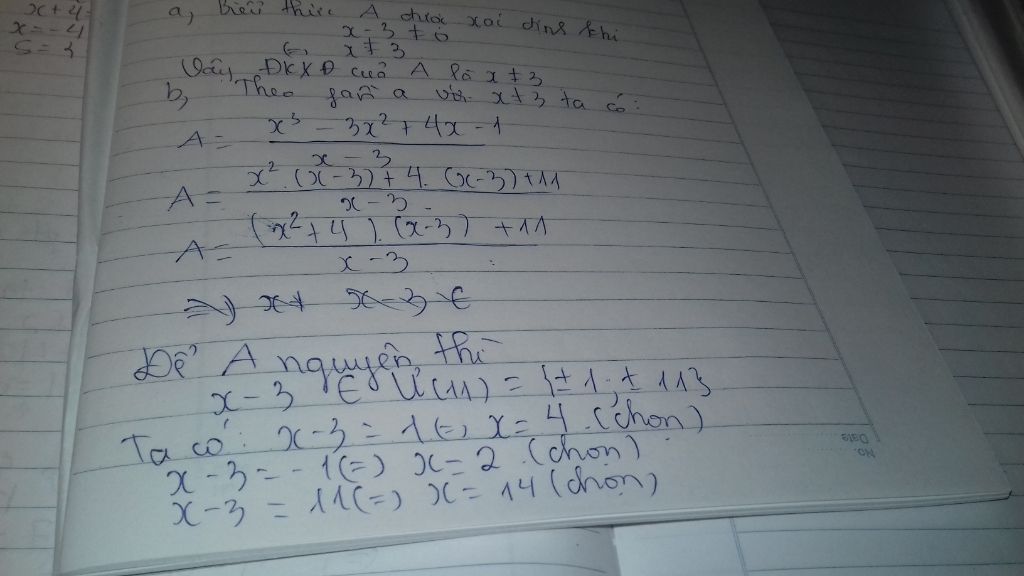 x + 4
x = -4
S = {
a, Biểu thức A được xác định khi
x - 3 ≠ 0
(=) x ≠ 3
Vậy ĐKXĐ của A là x ≠ 3
b, Theo phần a với x ≠ 3 ta có:
A = x³ - 3x² + 4x - 1 / x - 3
A = x².(x-3) + 4.(x-3) + 11 / x - 3
A = (x² + 4).(x-3) + 11 / x - 3
=> x+ x - 3 ∈
Để A nguyên thì
x - 3 ∈ Ư(11) = {±1; ±11}
Ta có: x - 3 = 1 (=) x = 4 (chọn)
x - 3 = -1 (=) x = 2 (chọn)
x - 3 = 11 (=) x = 14 (chọn)
No.
Date